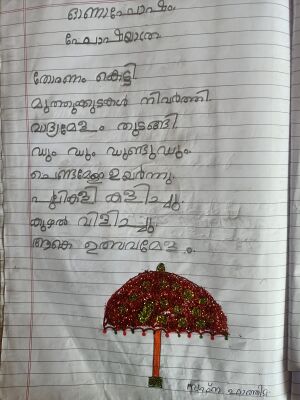 ഓണാഘോഷം.
ഘോഷയാത്ര
തോരണം കെട്ടി.
മുത്തുക്കുടകൾ നിവർത്തി.
വാദ്യമേളം തുടങ്ങി.
ഡും ഡും ഡുണ്ടുഡും.
ഉയർന്നു.
പുലികളി കളിച്ചു.
കുഴൽ വിളിച്ചു.
ആകെ ഉത്സവമേളം.